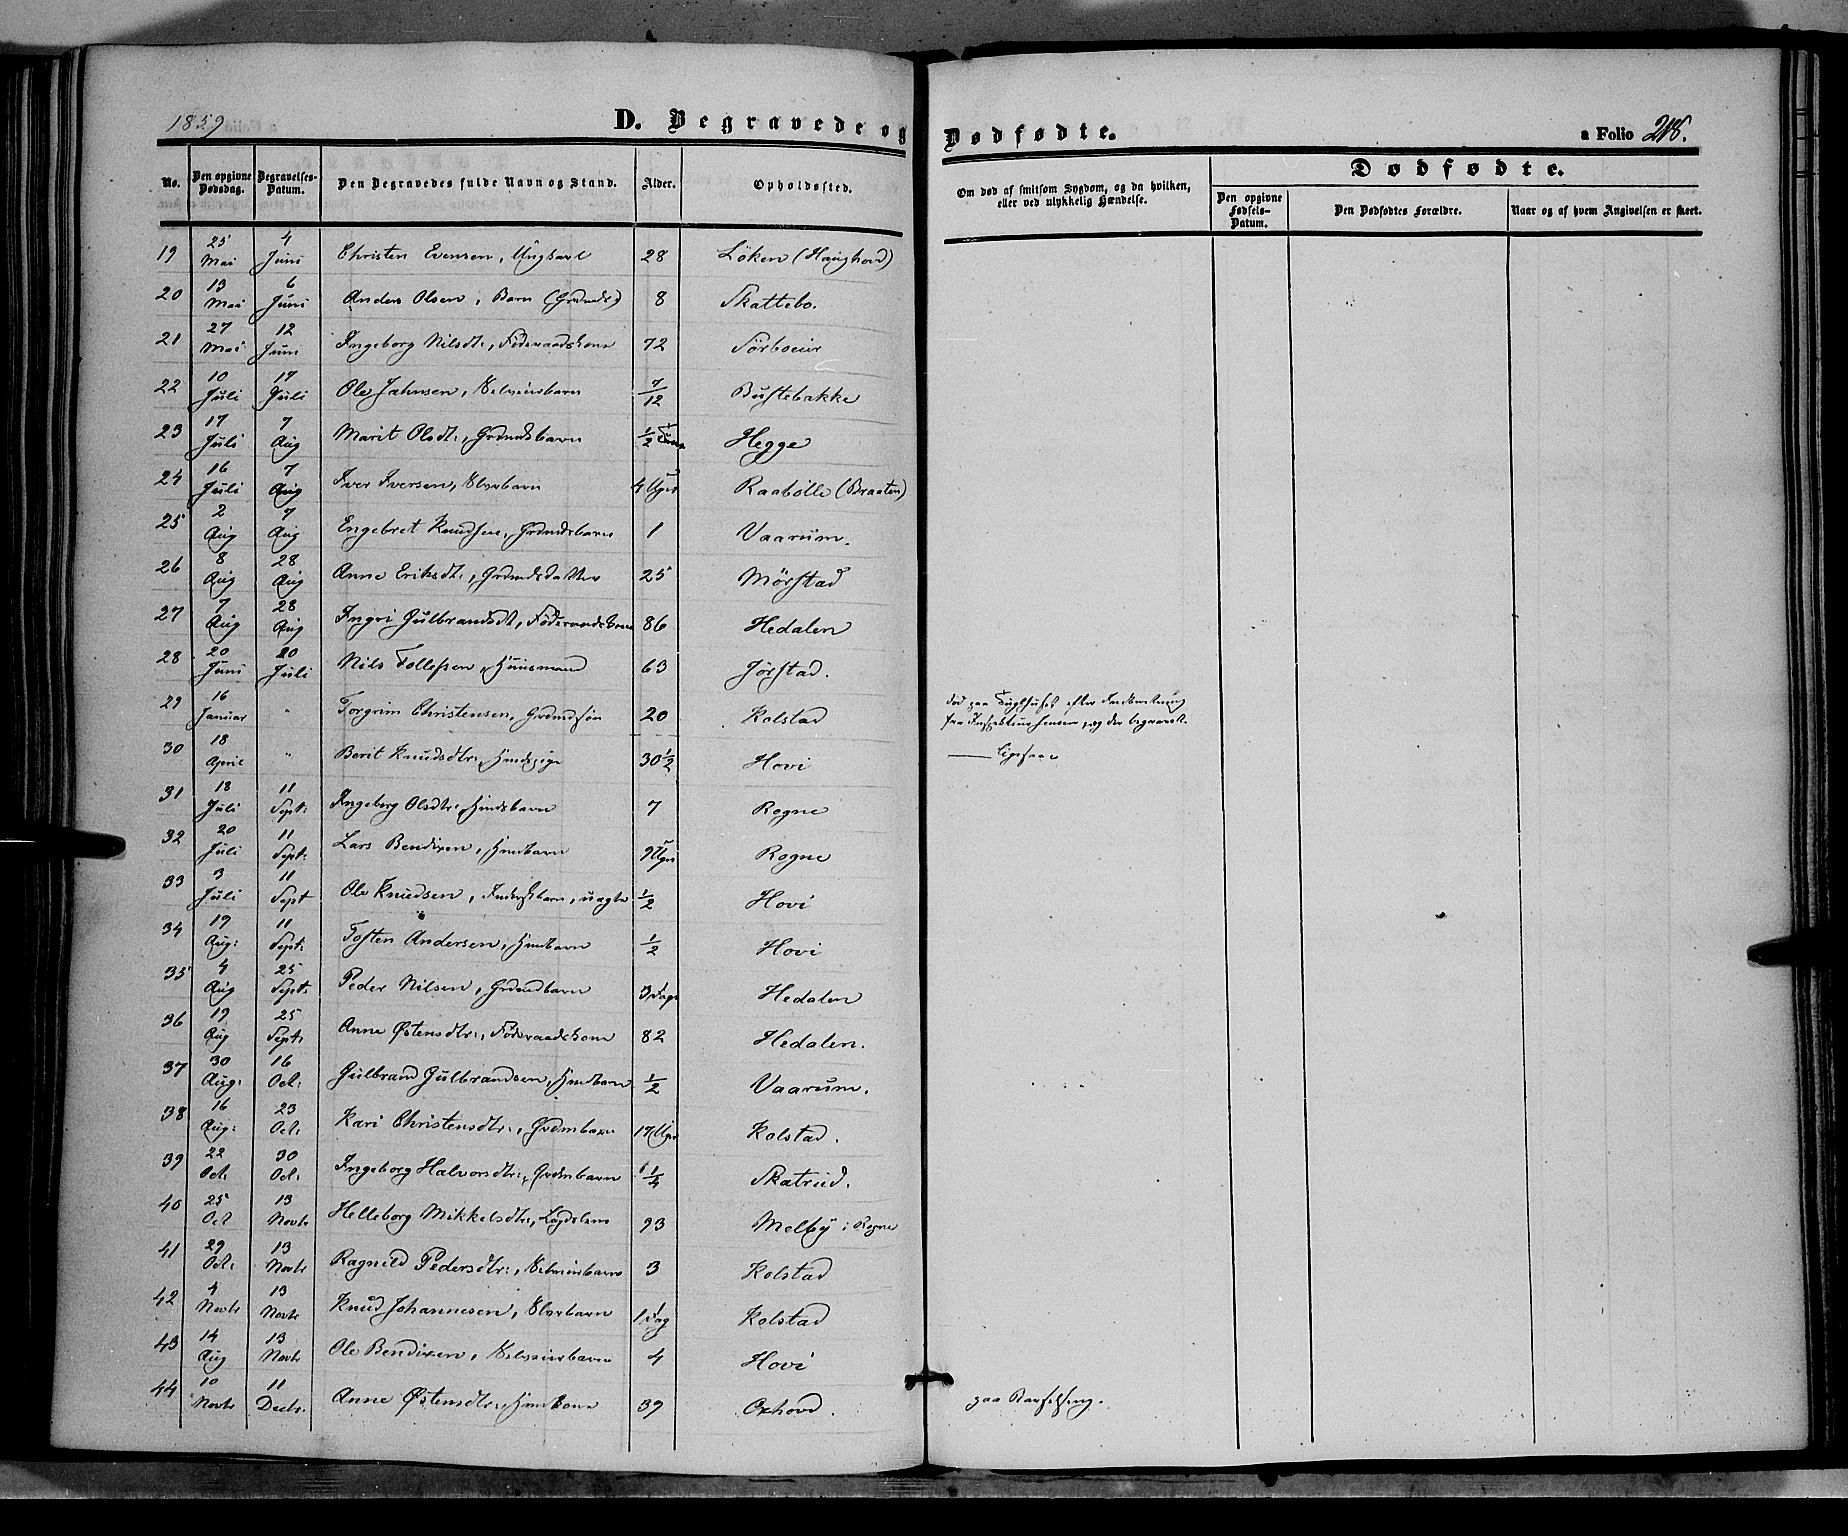 1859
D. Begravede og Dødfødte.
a Folio 218.
No. Den opgivne Dødsdag. Begravelses-Datum. Den Begravedes fulde Navn og Stand. Alder. Opholdssted. Om død af smitsom Sygdom, og da hvilken, eller ved ulykkelig Hændelse. Dødfødte. Den opgivne Fødsels-Datum. Den Dødfødtes Forældre. Naar og af hvem Angivelsen er skeet.
19 25 Mai 4 Juni Christen Evensen, Ungkarl 28 Löken (Haughovd)
20 13 Mai 6 Juni Anders Olsen, Barn (Grdmds) 8 Skattebo.
21 27 Mai 12 Juni Ingeborg Nilsdt:, Föderaadskone 72 Sörboeier
22 10 Juli 17 Juli Ole Jahnsen, 7/12 Bustebakke
23 17 Juli 7 Aug Marit Olsdt:, Grdmdsbarn 1/2 Hegge
24 16 Juli 7 Aug Iver Iversen, 4 Uger Raabölle (Braaten)
25 2 Aug 7 Aug Engebret Knudsen, Grdmdsbarn 1 Vaarum.
26 8 Aug 28 Aug Anne Eriksdt:, Grdmdsdatter 25 Mørstad
27 7 Aug 28 Aug Ingri Gulbrandsdt, Föderaadskone 86 Hedalen
28 20 Juni 20 Juli Nils Tollefsen, Huusmand 63 Jørstad.
29 16 Januar " Torgrim Christensen, Grdmdsøn 20 Kolstad død paa Tugthuset efter Indberetning
fra og der begravet.
30 18 April " Berit Knudsdtr:, Hmdspige 30 1/2 Hovi — Ligesaa
31 18 Juli 11 Sept: Ingeborg Olsdtr:, Hmdsbarn 7 Rogne
32 20 Juli 11 Sept: Lars Bendixen, Hmdbarn 9 Uger Rogne
33 3 Juli 11 Sept Ole Knudsen, uægte 1/2 Hovi
34 19 Aug: 11 Sept: Tosten Andersen, Hmdbarn 1/2 Hovi
35 4 Aug 25 Sept: Peder Nilsen, Grdmdbarn 3 Dage Hedalen
36 19 Aug 25 Sept: Anne Østensdtr:, Föderaadskone 82 Hedalen.
37 30 Aug: 16 Oct: Gulbrand Gulbrandsen, Hmdbarn 1/2 Vaarum.
38 16 Aug: 23 Oct: Kari Christensdtr:, Grdmbarn 17 Uger Kolstad.
39 22 Oct: 30 Oct: Ingeborg Halvorsdtr:, Grdmbarn 1 1/4 Skatrud.
40 25 Oct 13 Novbr Helleborg Mikkelsdtr:, Lægdslem 93 Melby i Rogne
41 29 Oct: 13 Novbr Ragnild Pedersdtr:, 3 Kolstad
42 4 Novbr 13 Novbr Knud Johannesen, 1 Dag Kolstad
43 14 Aug 13 Novbr Ole Bendixen, 4 Hovi
44 10 Novbr 11 Decbr. Anne Østensdtr:, Hmdkone 39 Oxhovd. paa Barselseng.